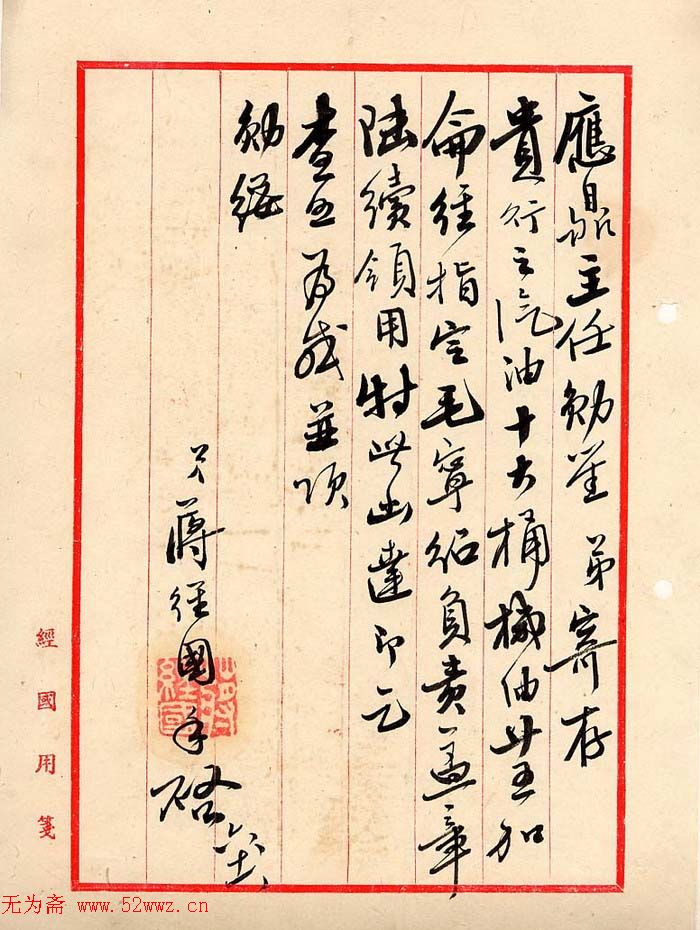 應鼎主任勛鑒 弟寄存
貴行之汽油十大桶機油廿五加
侖經指定毛寧紹負責蓋章
陸續領用特此函達即乞
查照為感並頌
勛綏
弟蔣經國手啓
經國用箋
无为斋 www.52wwz.cn